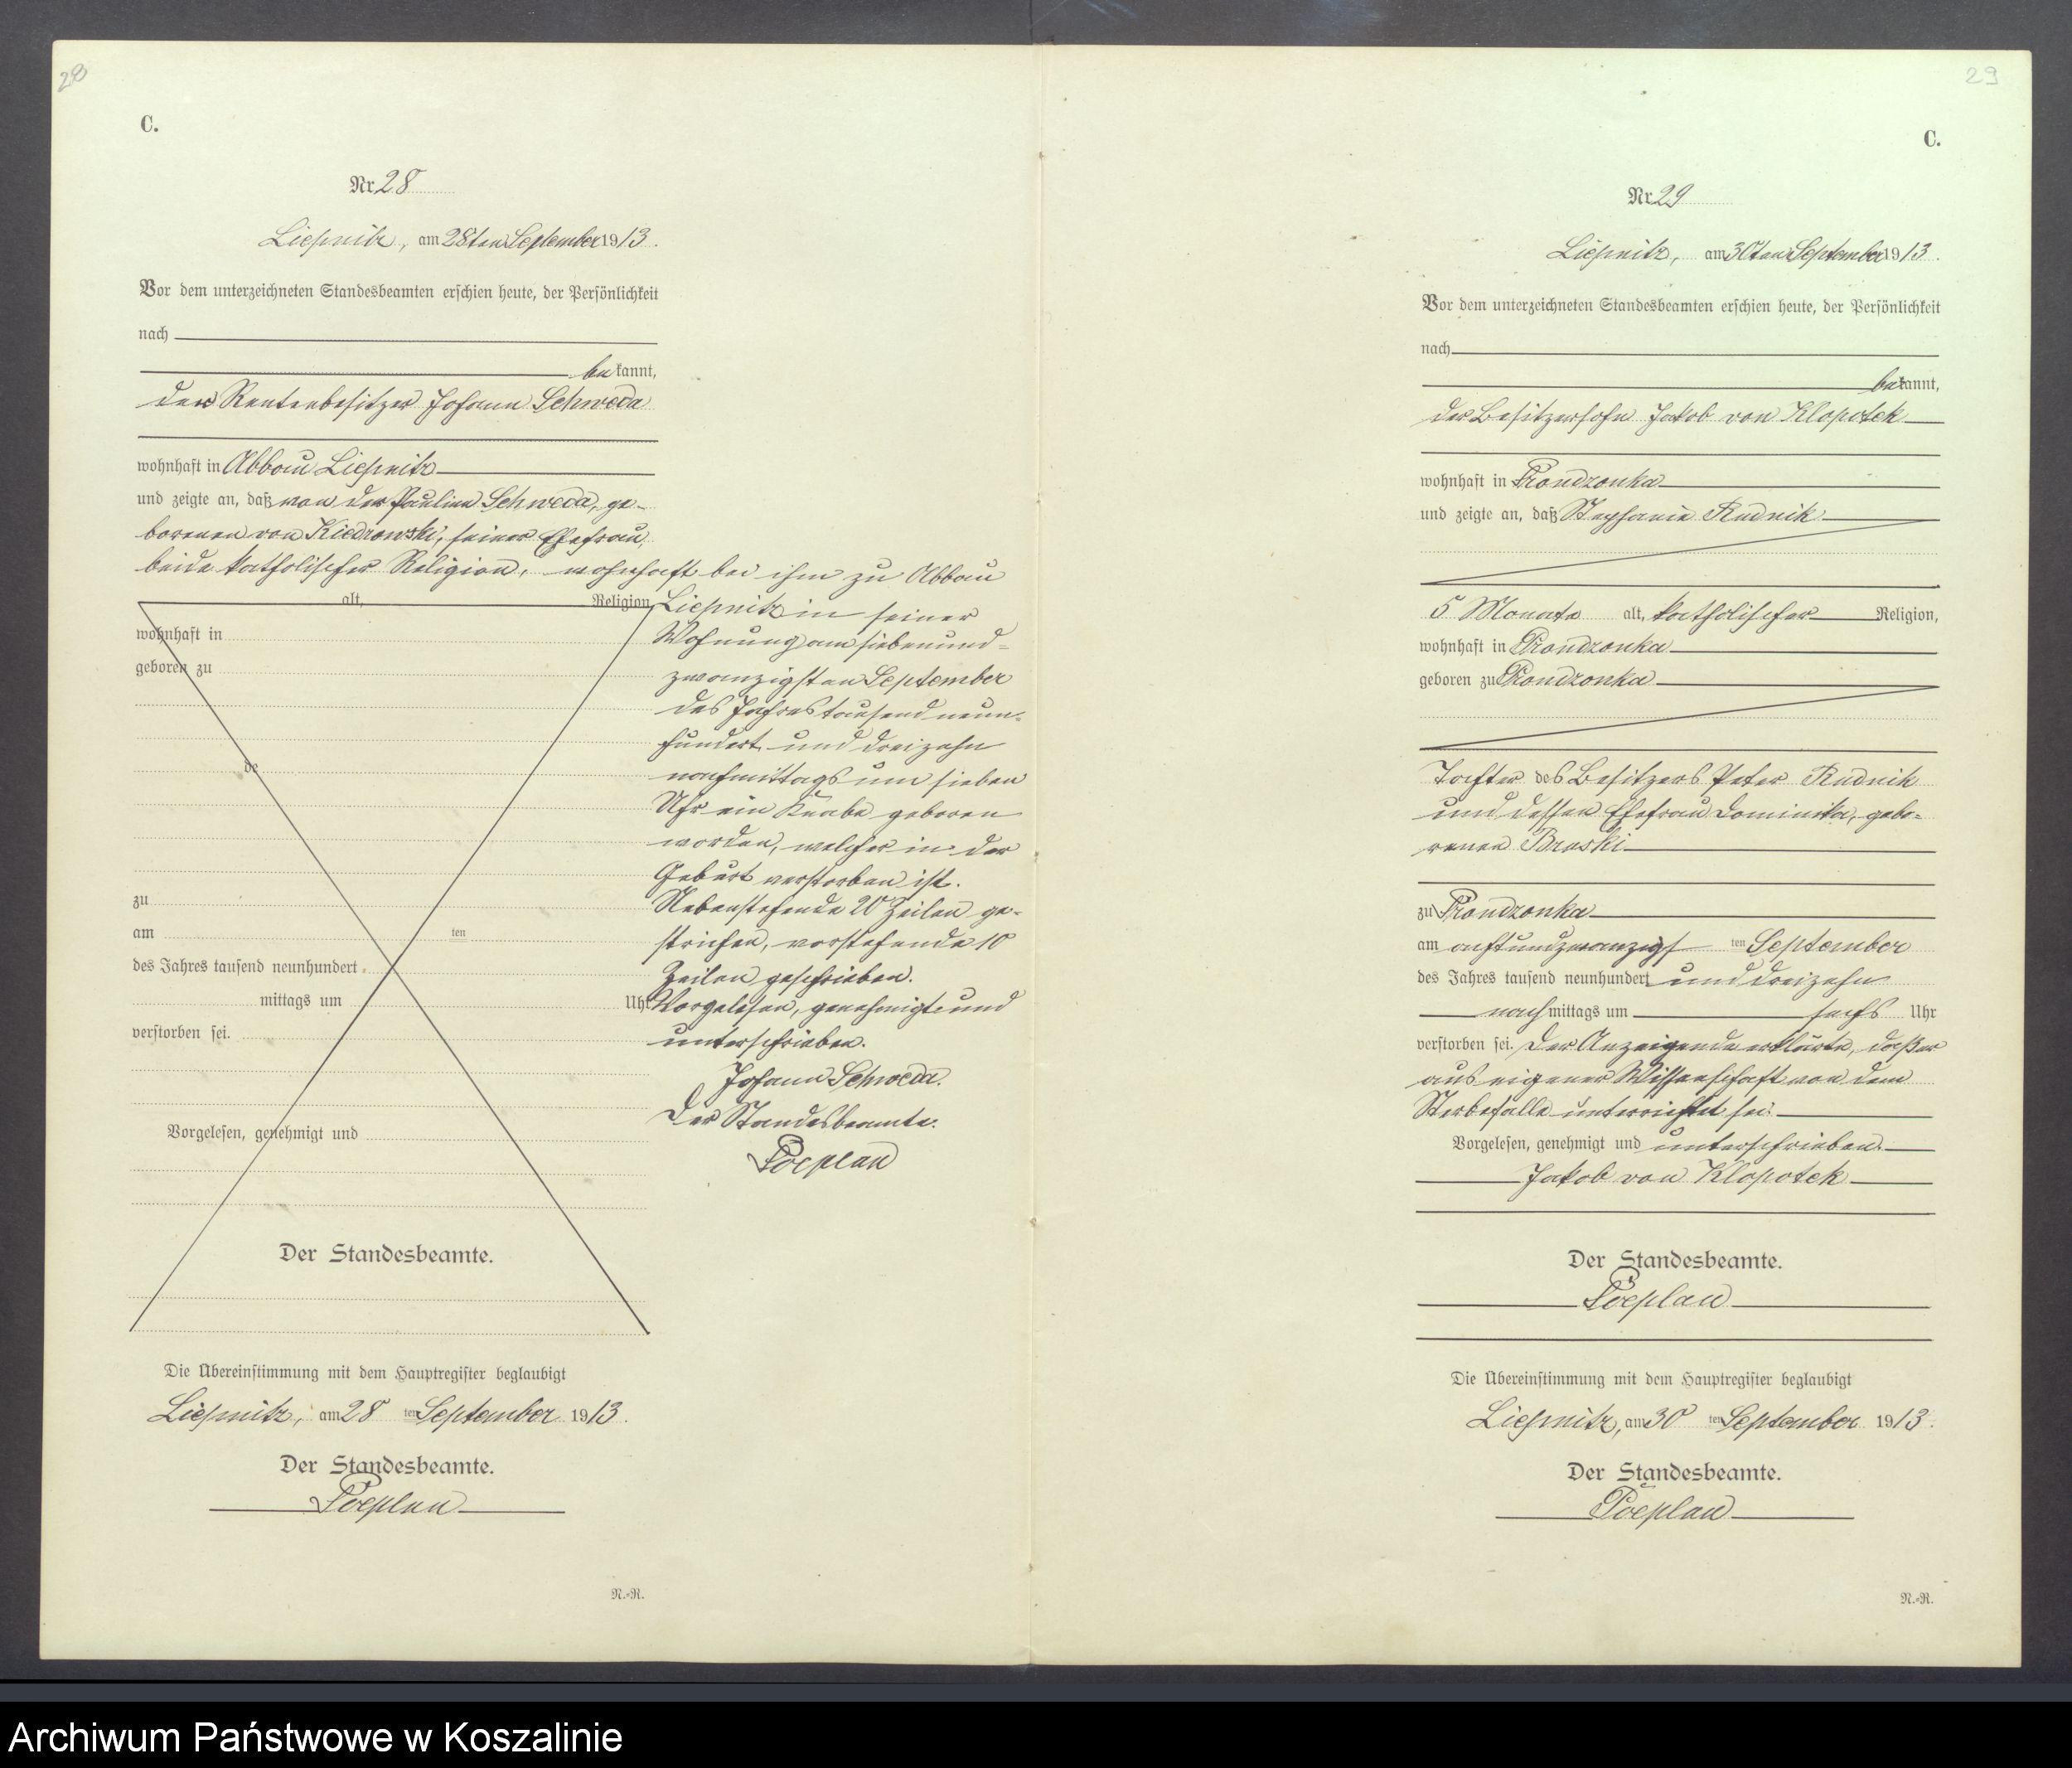 28
C.
Nr. 28
Liepnitz, am 28ten September 1913.
Vor dem unterzeichneten Standesbeamten erschien heute, der Persönlichkeit
nach
bekannt,
der Rentenbesitzer Johann Schweda
wohnhaft in Abbau Liepnitz
und zeigte an, daß von der Pauline Schweda, ge-
borenen von Kiedrowski, seiner Ehefrau,
beide katholischer Religion, wohnhaft bei ihm zu Abbau
alt, Religion,
Liepnitz in seiner
wohnhaft in
Wohnung am siebenund-
geboren zu
zwanzigsten September
des Jahres tausend neun-
hundert und dreizehn
de
nachmittags um sieben
Uhr ein Knabe geboren
worden, welcher in der
Geburt verstorben ist.
zu
Nebenstehende 20 Zeilen ge-
am ten
strichen, vorstehende 10
des Jahres tausend neunhundert
Zeilen geschrieben.
mittags um Uhr
Vorgelesen, genehmigt und
verstorben sei.
unterschrieben.
Johann Schweda.
Der Standesbeamte.
Vorgelesen, genehmigt und
Poeplau
Der Standesbeamte.
Die Übereinstimmung mit dem Hauptregister beglaubigt
Liepnitz, am 28 ten September 1913.
Der Standesbeamte.
Poeplau
N.-R.
29
C.
Nr. 29
Liepnitz, am 30ten September 1913.
Vor dem unterzeichneten Standesbeamten erschien heute, der Persönlichkeit
nach
bekannt,
der Besitzersohn Jakob von Klopotek
wohnhaft in Prondzonka
und zeigte an, daß Stephanie Rudnik
5 Monate alt, katholischer Religion,
wohnhaft in Prondzonka
geboren zu Prondzonka
Tochter des Besitzers Peter Rudnik
und dessen Ehefrau Dominika, gebo-
renen Bruski
zu Prondzonka
am achtundzwanzigsten September
des Jahres tausend neunhundert und dreizehn
nachmittags um sechs Uhr
verstorben sei. Der Anzeigende erklärte, daß er
aus eigener Wissenschaft von dem
Sterbefalle unterrichtet sei.
Vorgelesen, genehmigt und unterschrieben.
Jakob von Klopotek
Der Standesbeamte.
Poeplau
Die Übereinstimmung mit dem Hauptregister beglaubigt
Liepnitz, am 30 ten September 1913.
Der Standesbeamte.
Poeplau
N.-R.
Archiwum Państwowe w Koszalinie